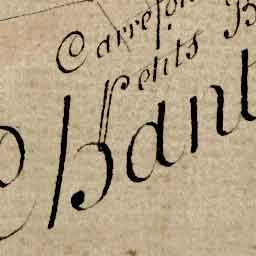 Carrefo
Petits B
Bant